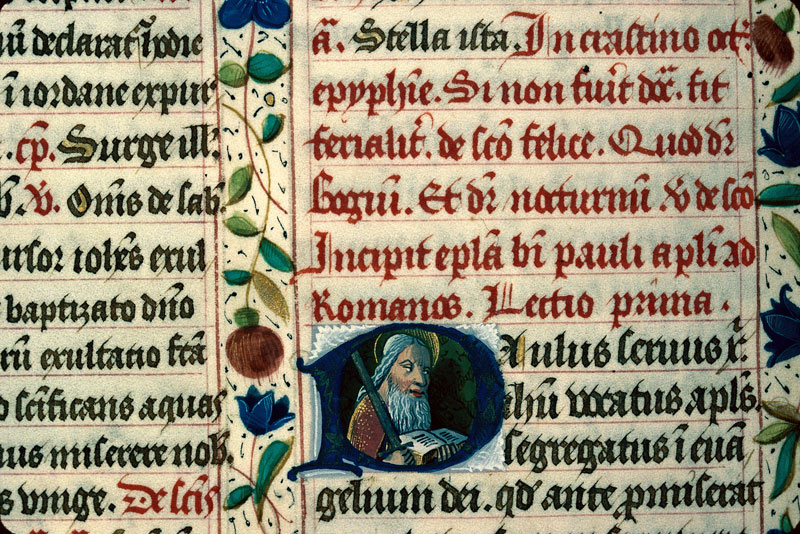 nū declarat. Hodie
ī iordane expur
. cp̄. Surge ill.
℣. Om̄s de sab.
ursor ioh̄es exul
baptizato dn̄o
rū exultatio s̄cā
scīficans aquas
nus miserere nob.
s vnige. De scīs
a. Stella ista. In crastino oct.
epyphīe. Si non fuīt do͞c. fit
ferialit̄. de sc̄o felice. Quod dr̄
Et dr̄ nocturnū de sc̄o
Incipit epl̄a bī pauli apl̄i ad
Romanos. Lectio prima.
Paulus seruus ī.
ihū vocatus apl̄s.
segregatus ī euā
gelium dei. qd̄ ante p̄miserat